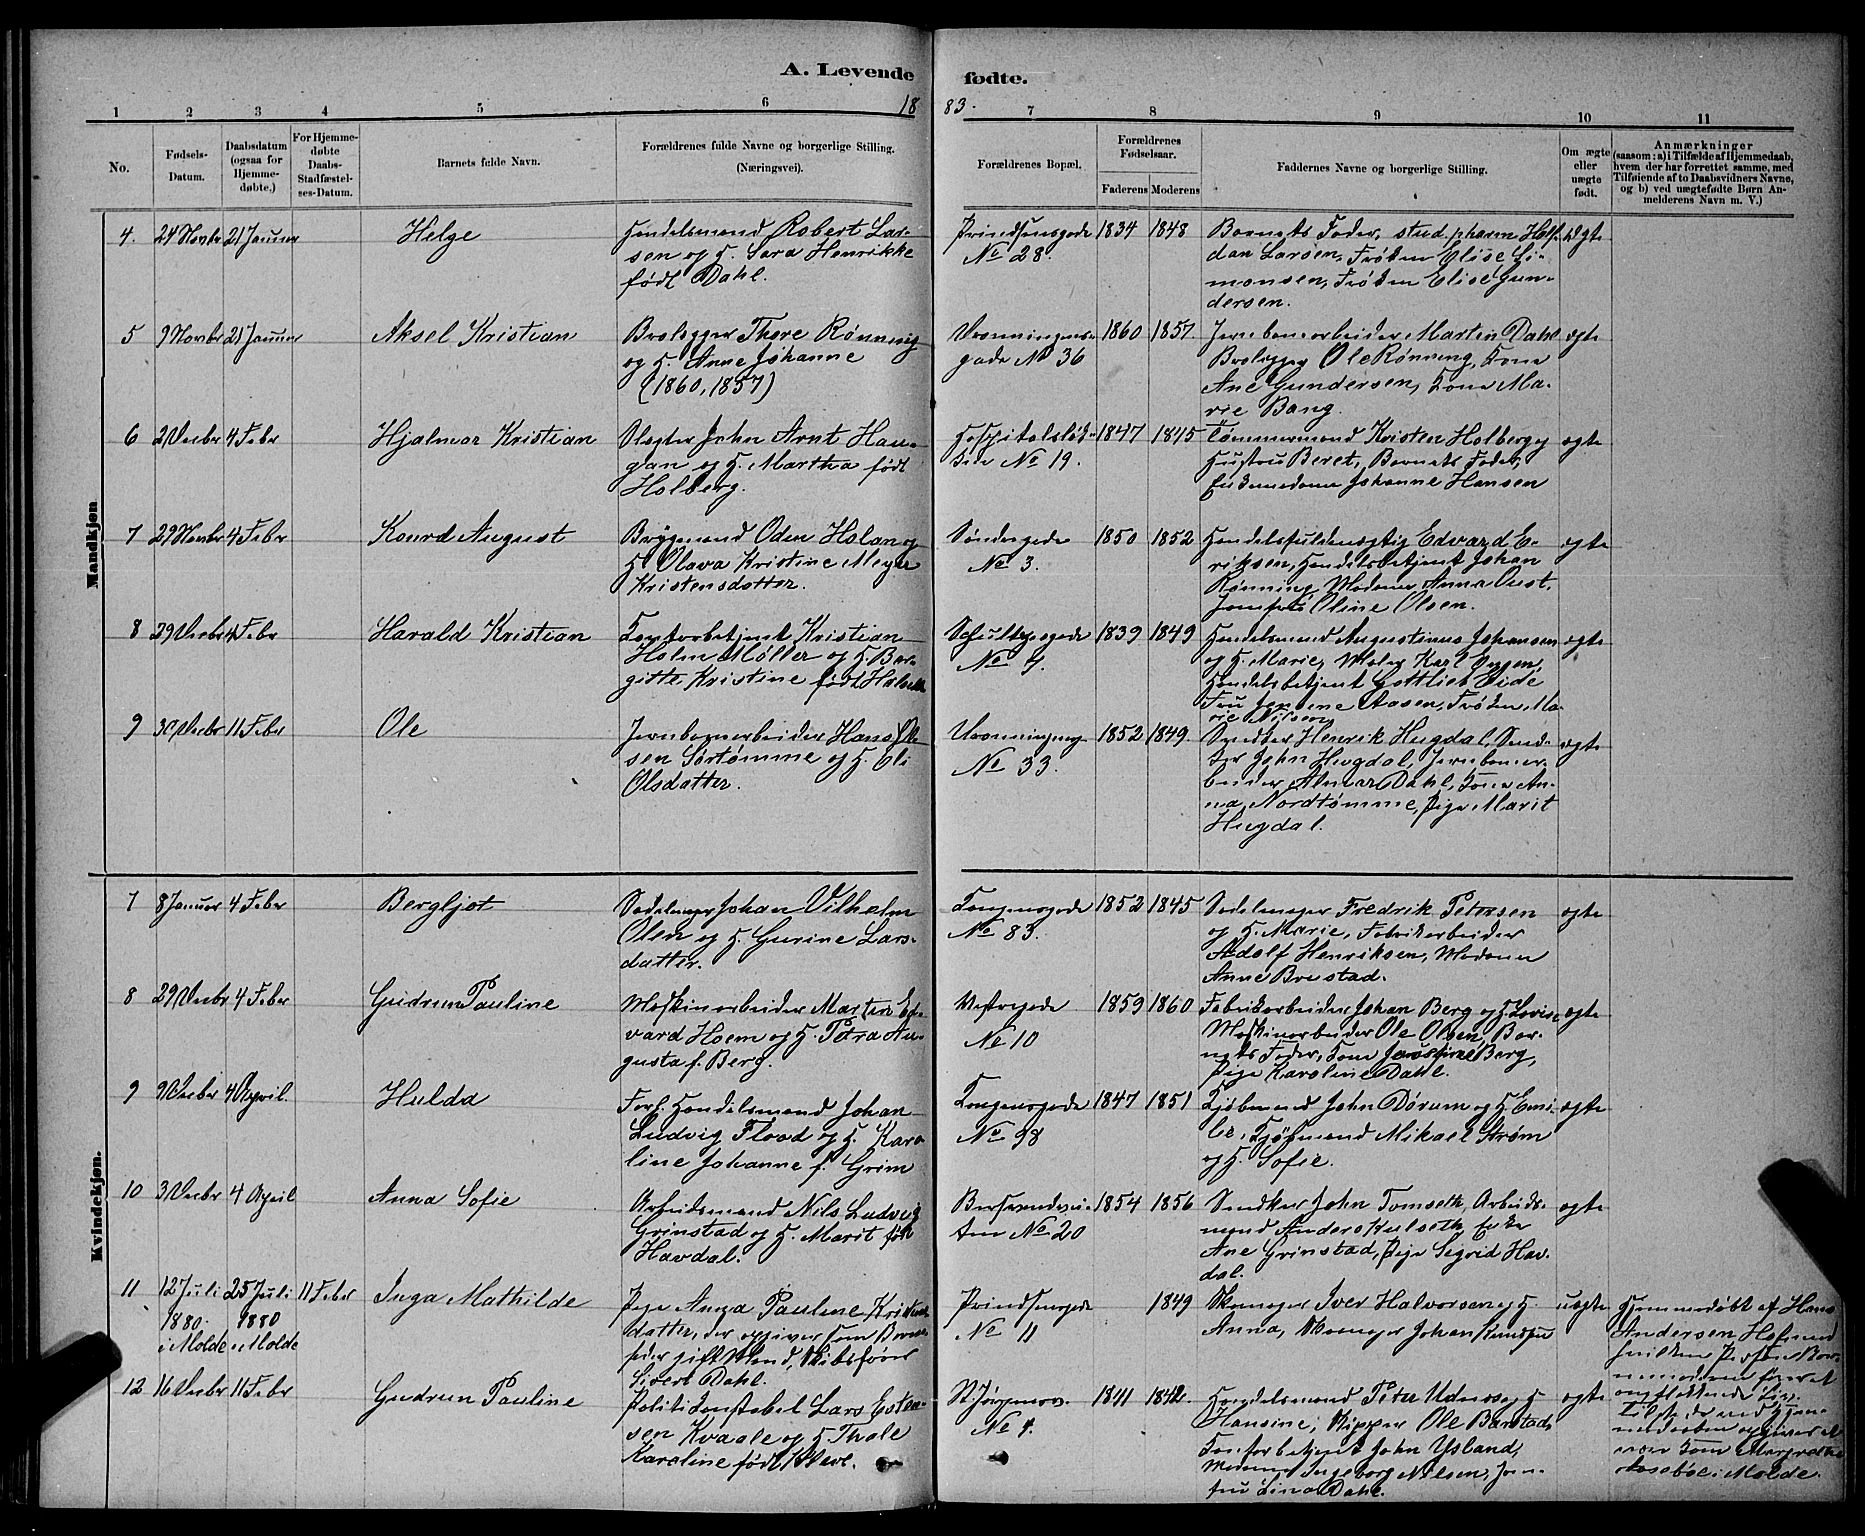 A. Levende fødte.
1883.
1 2 3 4 5 6 7 8 9 10 11
No.
Fødsels-
Datum.
Daabsdatum
(ogsaa for
Hjemme-
døbte,)
For Hjemme-
døbte
Daabs-
Stadfæstel-
ses-Datum.
Barnets fulde Navn.
Forældrenes fulde Navne og borgerlige Stilling.
(Næringsvei).
Forældrenes Bopæl.
Forældrenes
Fødselsaar.
Faderens Moderens
Faddernes Navne og borgerlige Stilling.
Om ægte
eller
uægte
født.
Anmærkninger
(saasom: a) i Tilfælde af Hjemmedaab,
hvem der har forrettet samme, med
Tilføiende af to Daabsvidners Navne,
og b) ved uægtefødte Børn An-
melderens Navn m. V.)
Mandkjøn
4. 24 Novbr 21 Januar
Helge
Handelsmand Robert Lar-
sen og H. Sara Henrikke
født Dahl.
Prindsensgade
No 28.
1834 1848
Barnets Fader, stud. pharm Half-
dan Larsen, Frøken Elise Si-
monsen, Frøken Elise Gun-
dersen.
ægte
5 9 Novbr 21 Januar
Aksel Kristian
Brolegger Thore Rønning
og H. Anne Johanne
(1860, 1857)
gade No 36
1860 1857
Jernbanearbeider Martin Dahl
Brolegger Ole Rønning, Kone
Ane Gundersen, Kone Ma-
rie Bang.
ægte
6 2 Decbr 4 Febr
Hjalmar Kristian
Slagter John Arnt Hau-
gan og H. Martha født
Holberg.
No 19.
1847 1845
Tømmermand Kristen Holberg og
Hustru Beret, Barnets Fader,
Enkemadame Johanne Hansen
ægte
7 29 Novbr 4 Febr
Konrd August
Brygmand Oden Holan og
H Olava Kristine Meyer
Kristensdatter.
Søndregade
No 3.
1850 1852
Handelsfuldmægtig Edvard E-
riksen, Handelsbetjent Johan
Rønning, Madame Anna Aust,
Jomfru Oline Olsen.
ægte
8 29 Decbr 4 Febr
Harald Kristian
Kontorbetjent Kristian
Holm Møller og H Ber-
gitte Kristine født
No 7.
1839 1849
Handelsmand Augustinus Johansen
og H. Marie, Maler Karl
Handelsbetjent Gottlieb Eide
Fru Aasen, Frøken Ma-
rie Nilsen
ægte
9 30 Decbr 11 Febr
Ole
Jernbanearbeider Hans Ol-
sen Sørtømme og H. Eli
Olsdatter.
No 33.
1852 1849.
Snedker Henrik Hugdal, Sned-
ker John Hugdal, Jernbanear-
beider Almar Dahl, Kone An-
na Nordtømme, Pige Marit
Hugdal.
ægte
Kvindekjøn.
7 8 Januar 4 Febr
Bergljot
Sadelmager Johan Vilhelm
Olsen og H. Gurine Lars-
datter.
Kongensgade
No 83.
1852 1845
Sadelmager Fredrik Petersen
og H. Marie, Fabrikarbeider
Adolf Henriksen, Madame
Anne Brustad.
ægte
8 29 Decbr 4 Febr
Gudrun Pauline
Maskinarbeider Marten Ed-
vard Hoem og H. Petra Au-
gusta f. Berg.
Vestregade
No 10
1859 1860
Fabrikarbeider Johan Berg og H Lovise
Maskinarbeider Ole Olsen, Bar-
nets Fader, Kone Berg,
Pige Karoline Dahl.
ægte
9 9 Decbr 4 April
Hulda
Forh. Handelsmand Johan
Ludvig Flood og H. Karo-
line Johanne f. Grim
Kongensgade
No 98
1847 1851
Kjøbmand John Dørum og H Emi-
lie, Kjøbmand Mikael Strøm
og H. Sofie.
ægte
10 3 Decbr 4 April
Anna Sofie
Arbeidsmand Nils Ludvig
Grinstad og H. Marit født
Havdal.
No 20
1854 1856
Snedker John Tomseth, Arbeids-
mand Anders Kulseth, Enke
Ane Grinstad, Pige Sigrid Hav-
dal.
ægte
11 12 Juli 25 Juli 11 Febr
1880. 1880
i Molde i Molde
Inga Mathilde
Pige Anna Pauline Kristens-
datter, der opgiver som Barne-
fader gift Mand, Skibsfører
Sivert Dahl.
Prindsensgade
No 11
1849
Skomager Iver Halvorsen og H.
Anna, Skomager Johan Knudsen
uægte
Hjemmedøbt af Hans
Andersen
i Molde.
12 16 Decbr 11 Febr
Gudrun Pauline
Politikonstabel Lars Esten-
sen Kvaale og H Thale
Karoline født
No 4.
1841 1842.
Handelsmand Peter og H
Hansine, Skipper Ole Barstad,
Kontorbetjent John Ysland,
Madame Ingeborg Nilsen, Jom-
fru Lina Dahl.
ægte